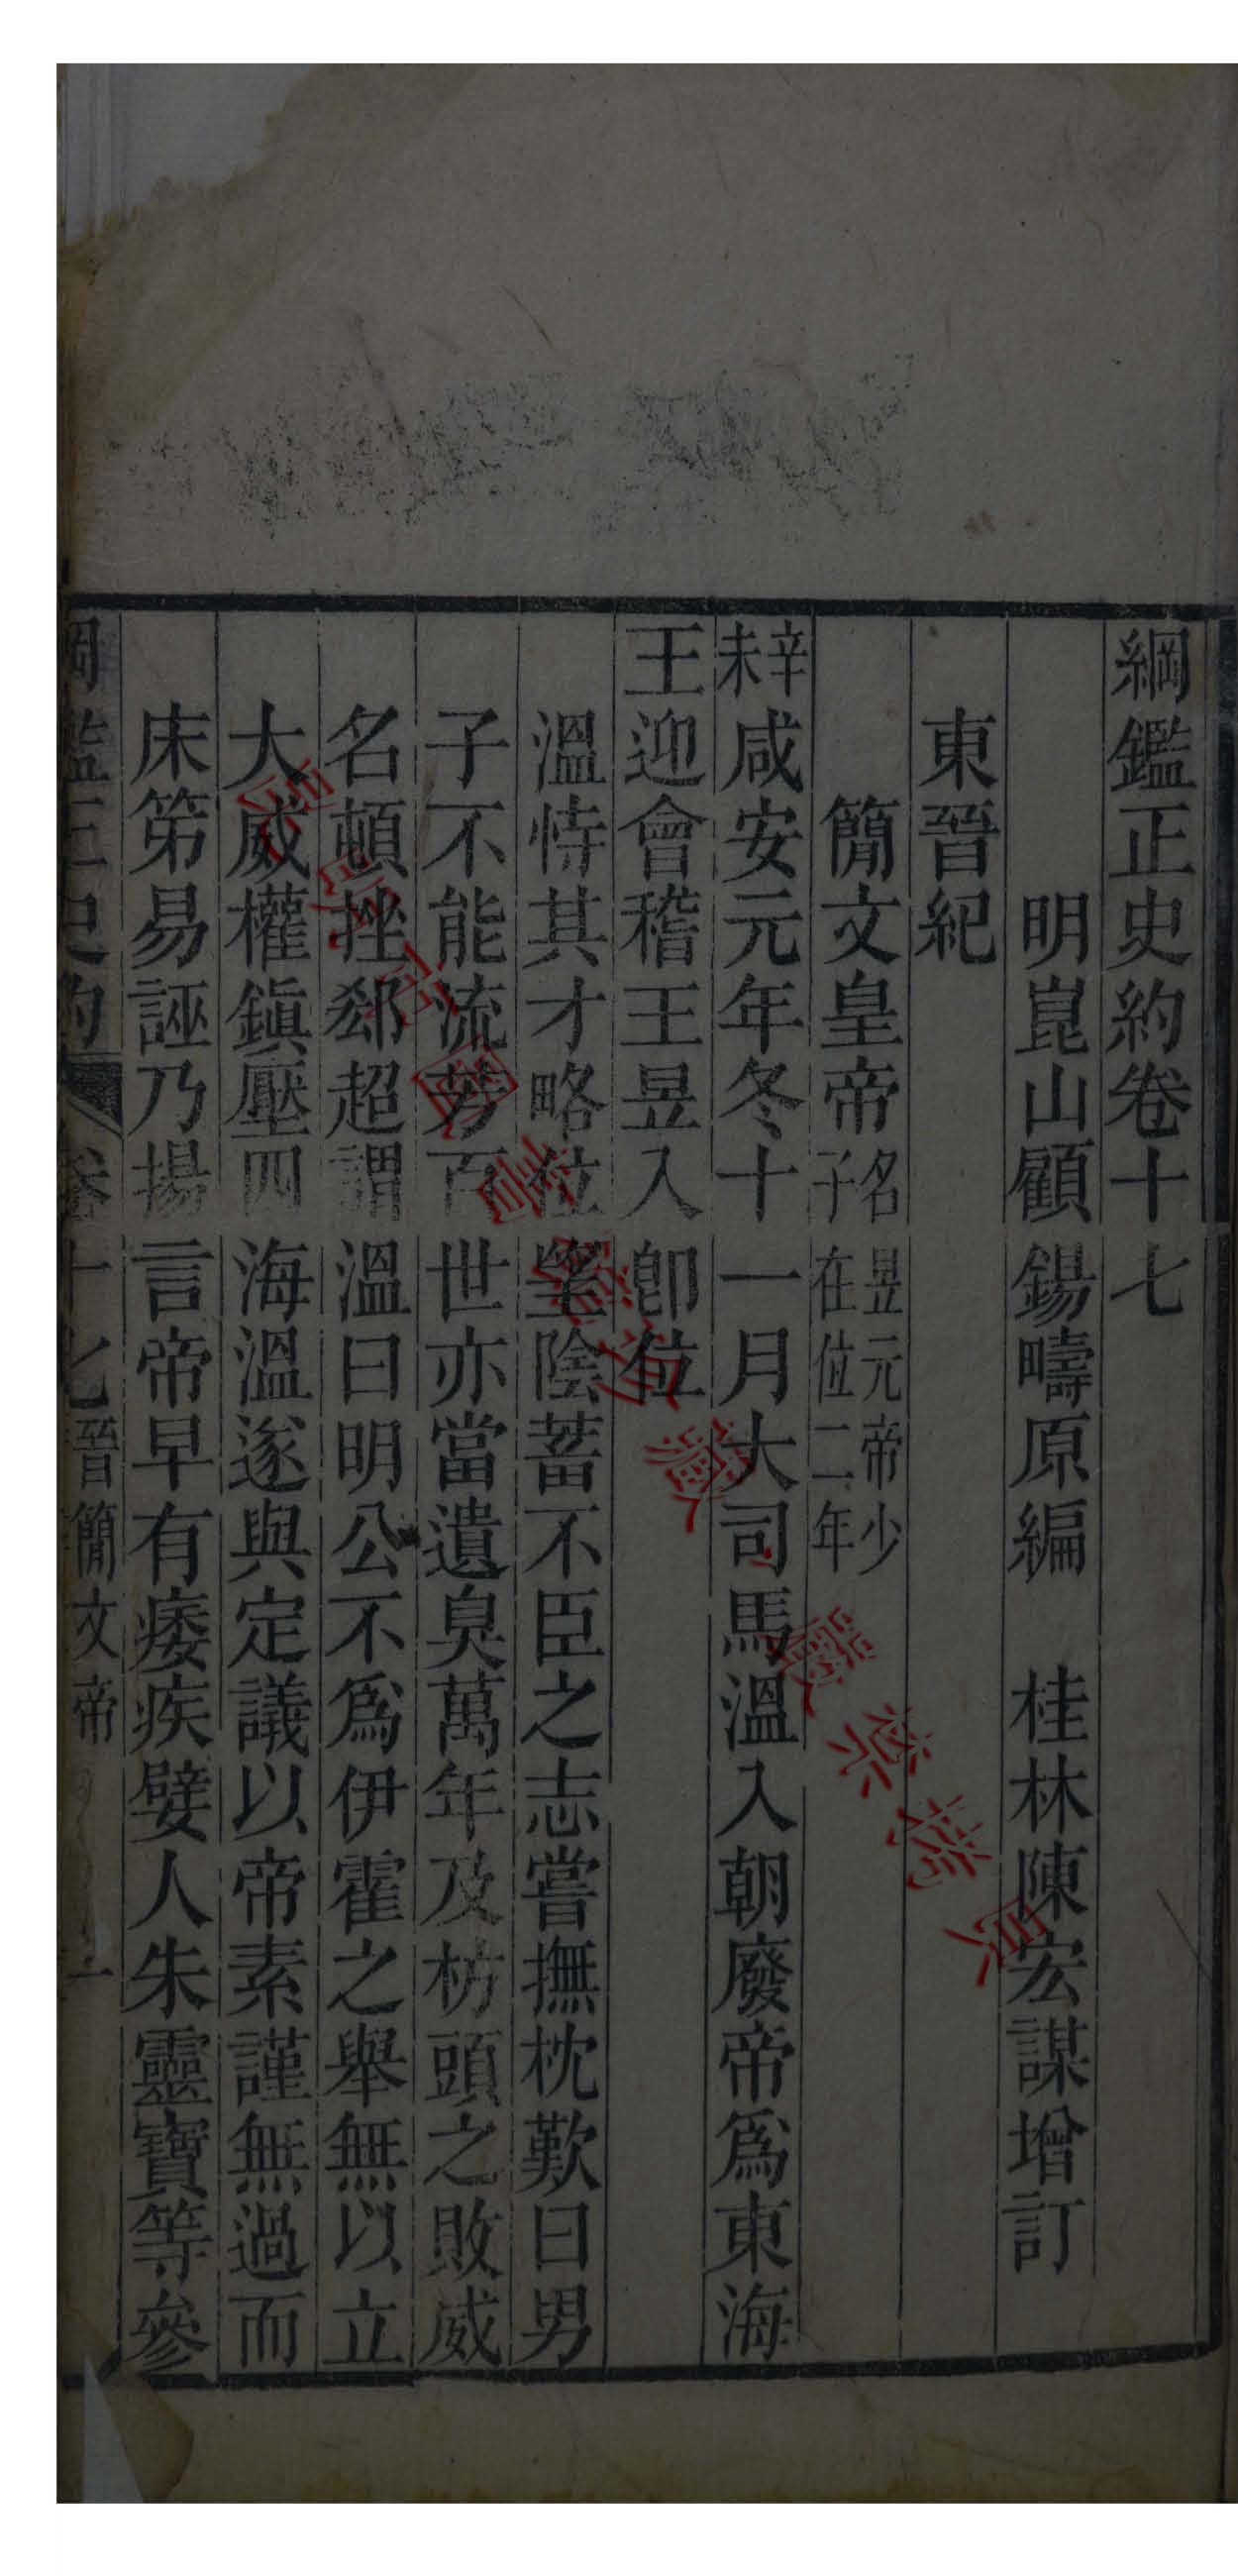 綱鑑正史約卷十七
明崑山顧錫疇原編　桂林陳宏謀增訂
東晉紀
簡文皇帝名昱元帝少子在位二年
辛未咸安元年冬十一月大司馬溫入朝廢帝為東海
王迎會稽王昱入卽位
溫恃其才略位朢陰蓄不臣之志嘗撫枕歎曰男
子不能流芳百世亦當遺臭萬年及枋頭之敗威
名頓挫郄超謂溫曰明公不爲伊霍之舉無以立
大威權鎭壓四海溫遂與定議以帝素謹無過而
床笫易誣乃揚言帝早有痿疾嬖人朱靈寶等參
綱鑑正史約　卷十七 晉簡文帝　一
嚴禁拷貝